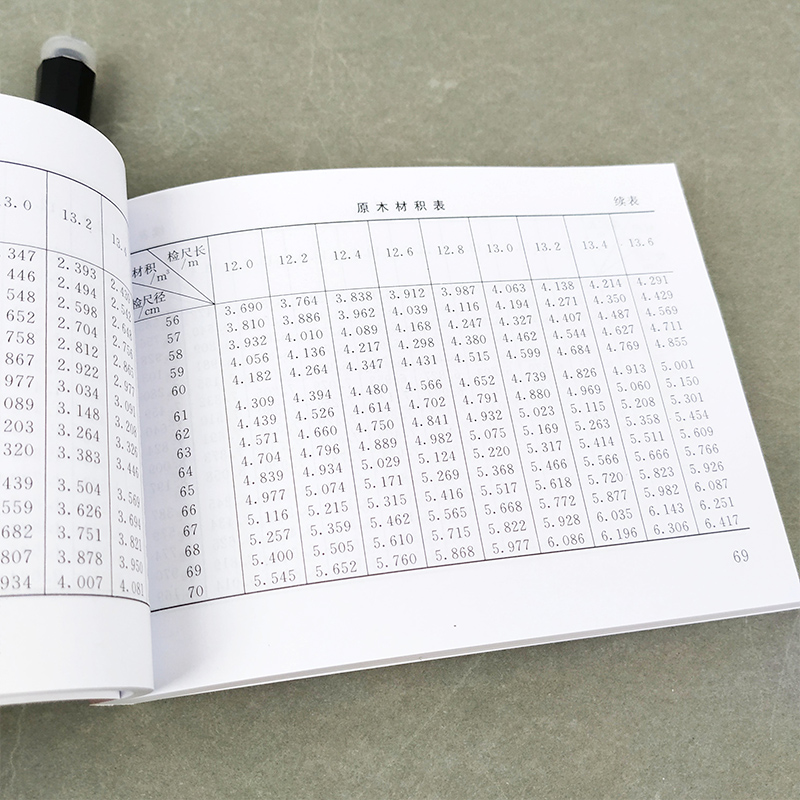 3.0 13.2
347 2.393
446 2.494
548 2.598
652 2.704
758 2.812
867 2.922
977 3.034 3.091
089 3.148 3.208
203 3.264 3.326
320 3.383 3.446
439 3.504 3.569
559 3.626 3.694
682 3.751 3.821
807 3.878 3.950
934 4.007 4.081
原木材积表
续表
材积/m³ 检尺长/m 检尺径/cm 12.0 12.2 12.4 12.6 12.8 13.0 13.2 13.4 13.6
56 3.690 3.764 3.838 3.912 3.987 4.063 4.138 4.214 4.291
57 3.810 3.886 3.962 4.039 4.116 4.194 4.271 4.350 4.429
58 3.932 4.010 4.089 4.168 4.247 4.327 4.407 4.487 4.569
59 4.056 4.136 4.217 4.298 4.380 4.462 4.544 4.627 4.711
60 4.182 4.264 4.347 4.431 4.515 4.599 4.684 4.769 4.855
61 4.309 4.394 4.480 4.566 4.652 4.739 4.826 4.913 5.001
62 4.439 4.526 4.614 4.702 4.791 4.880 4.969 5.060 5.150
63 4.571 4.660 4.750 4.841 4.932 5.023 5.115 5.208 5.301
64 4.704 4.796 4.889 4.982 5.075 5.169 5.263 5.358 5.454
65 4.839 4.934 5.029 5.124 5.220 5.317 5.414 5.511 5.609
66 4.977 5.074 5.171 5.269 5.368 5.466 5.566 5.666 5.766
67 5.116 5.215 5.315 5.416 5.517 5.618 5.720 5.823 5.926
68 5.257 5.359 5.462 5.565 5.668 5.772 5.877 5.982 6.087
69 5.400 5.505 5.610 5.715 5.822 5.928 6.035 6.143 6.251
70 5.545 5.652 5.760 5.868 5.977 6.086 6.196 6.306 6.417
69